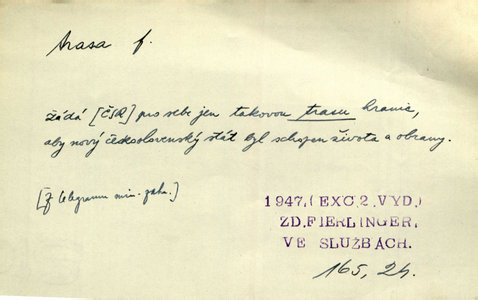 trasa f.
žádá [ČSR] pro sebe jen takovou trasu hranic,
aby nový československý stát byl schopen života a obrany.
[Z telegramu min. zahr.]
1947, (EXC. 2. VYD.)
ZD. FIERLINGER,
VE SLUŽBÁCH.
165, 2h.